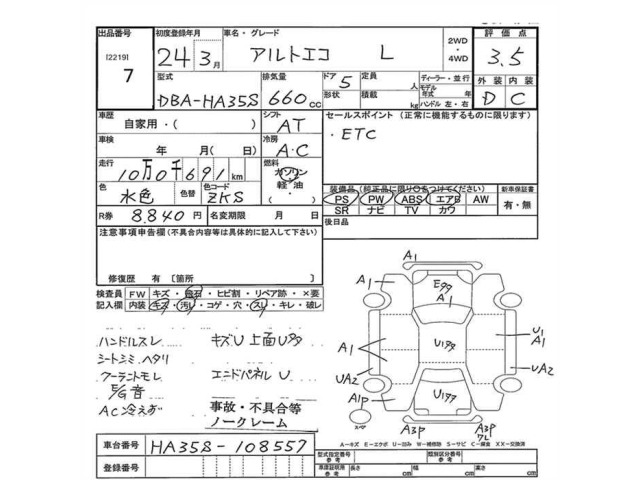 出品番号
[22191]
7
初度登録年月
24年3月
車名・グレード
アルトエコ L
2WD
・
4WD
評価点
3.5
型式
DBA-HA35S
排気量
660cc
ドア
5
形状
定員
人
積載
kg
ディーラー・並行
モデル
年式 年
ハンドル 左・右
外装 内装
D C
車歴
自家用・( )
シフト
AT
セールスポイント (正常に機能するものに限ります)
・ETC
車検
年 月(日)
冷房
A・C
走行
10万0千691km
燃料
ガソリン
軽・油
・( )
色
水色
色替
色コード
ZKS
装備品 (純正品に限り○をつけてください)
新車保証書
PS PW ABS エアB AW
有・無
SR ナビ TV カワ
R券
8,840円
名変期限 月 日
後日品
注意事項申告欄(不具合内容等は具体的に記入して下さい)
修復歴 有〔箇所
検査員
記入欄
FW キズ・飛石・ヒビ割・リペア跡・×要
内装 キズ・汚レ・コゲ・穴・スレ・キレ・破レ
ハンドルスレ
シートシミ、ヘタリ
クーラントモレ
E/G音
AC冷えず
キズU 上面Uタタ
エンドパネルU
事故・不具合等
ノークレーム
A1
A1
Eタタ
A1
U1
A1
A1
U1タタ
UA2
UA2
U1タタ
A1P
スペア
A3P
A3P
ワレ
A-キズ E-エクボ U-凹み W-補修跡 S-サビ C-腐食 XX-交換済
車台番号
HA35S-108557
登録番号
型式指定番号
参考
類別区分番号
参考
車庫証明用
参考
長さ cm
幅 cm
高さ cm